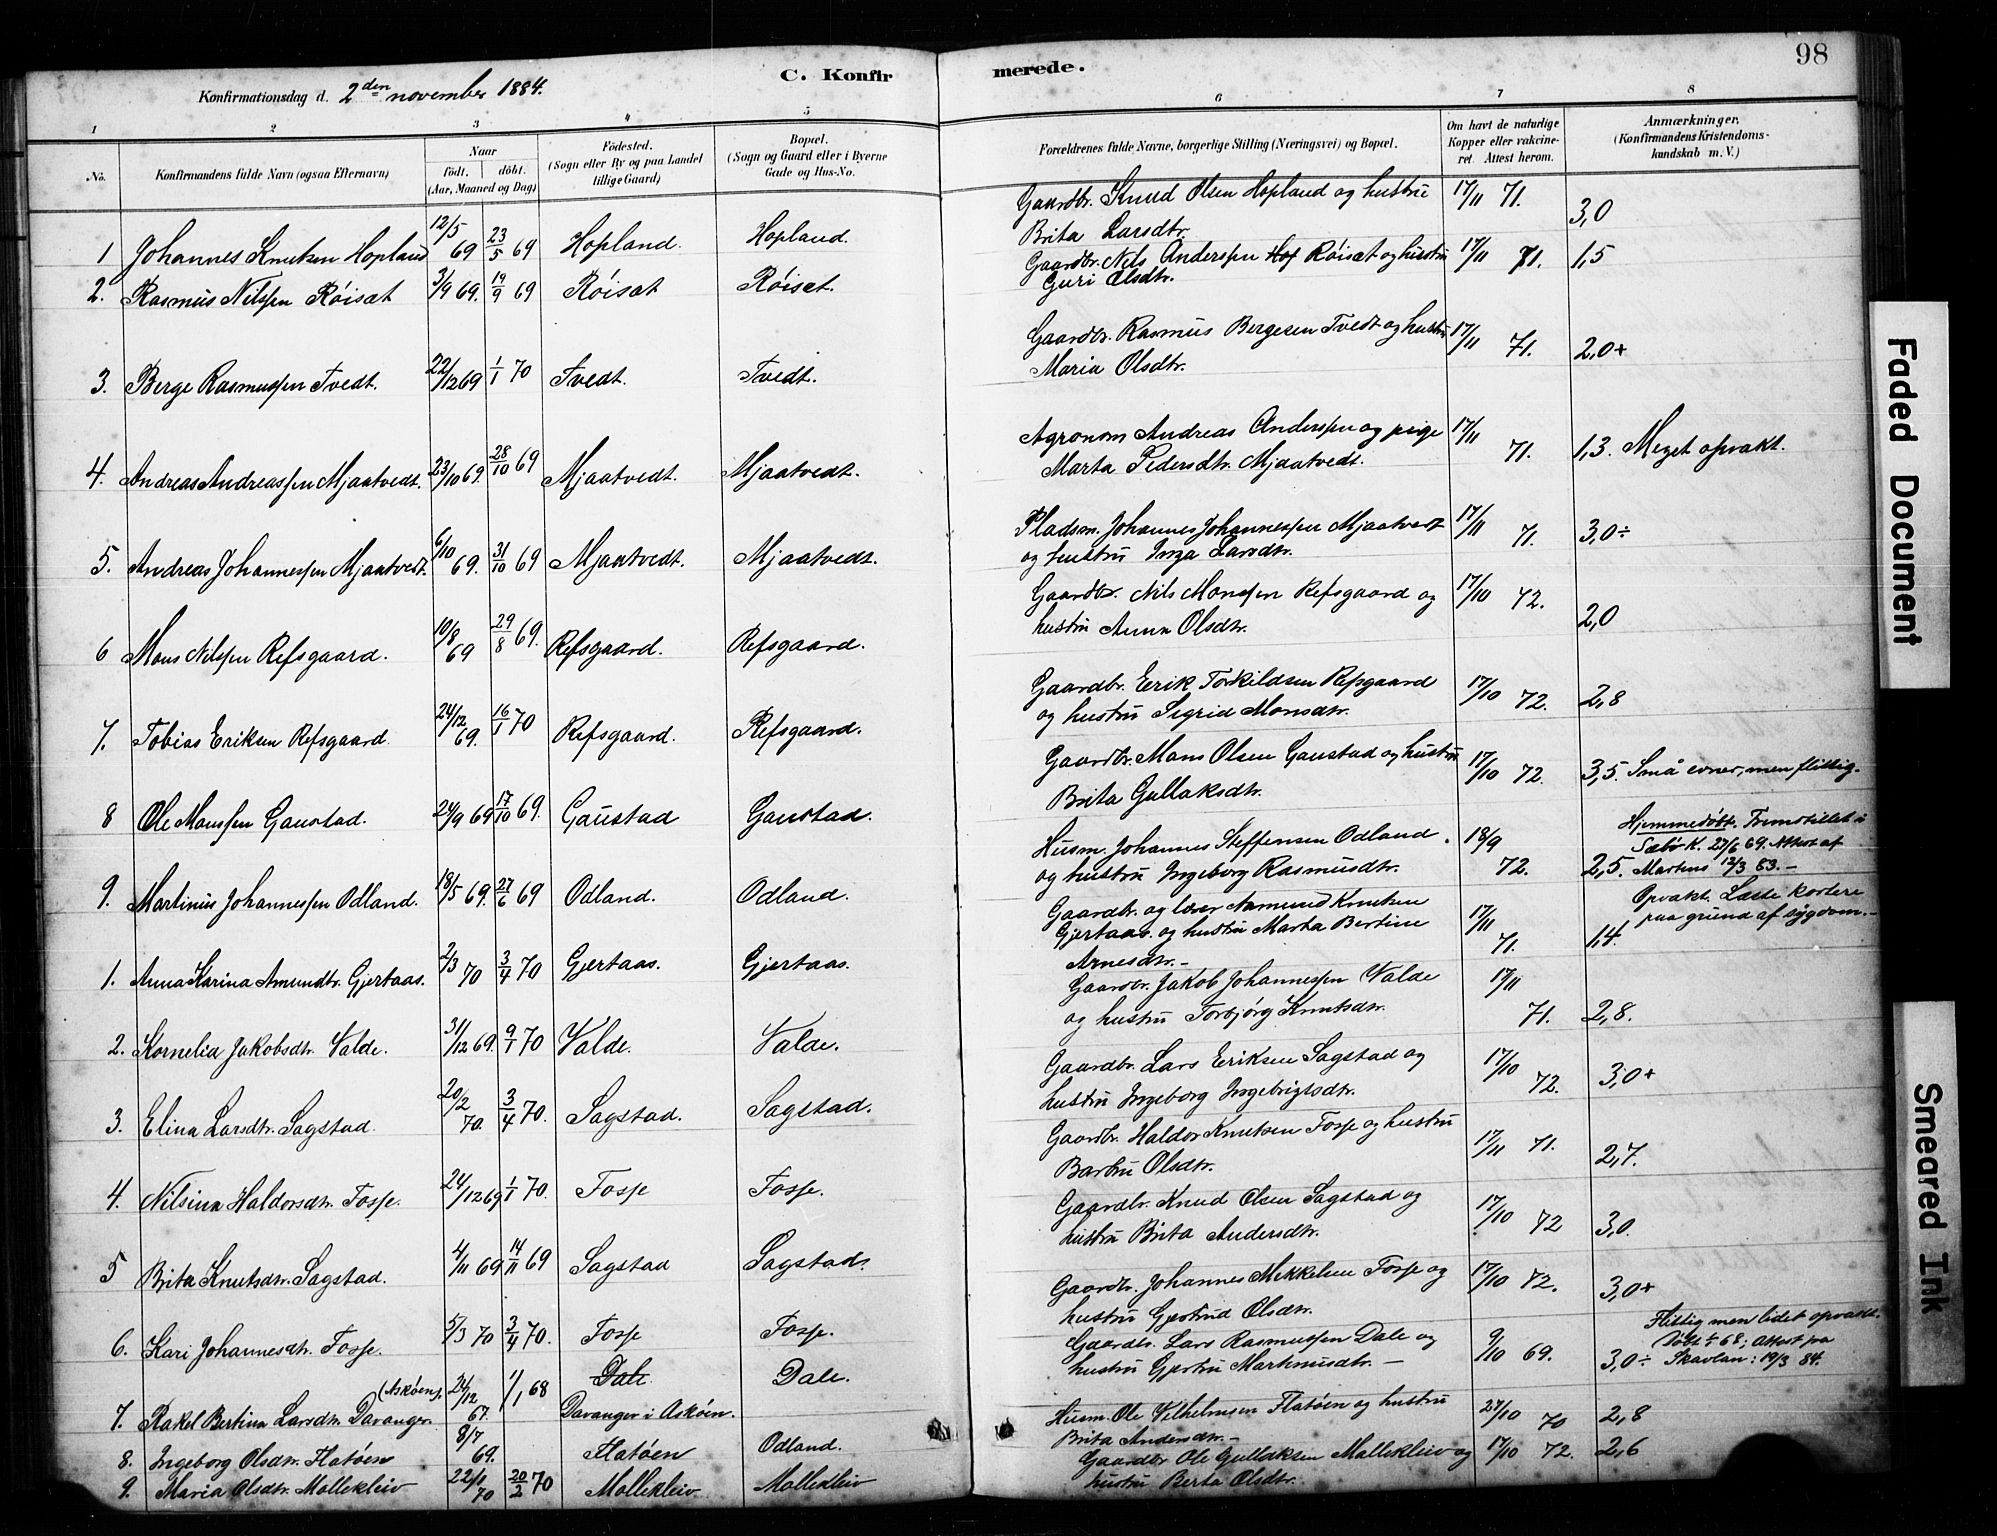 98
C. Konfirmerede.
Konfirmationsdag d. 2den november 1884.
1 2 3 4 5 6 7 8
No. Konfirmandens fulde Navn (ogsaa Efternavn) Naar født. døbt. (Aar, Maaned og Dag) Fødested. (Sogn eller By og paa Landet tillige Gaard) Bopæl. (Sogn og Gaard eller i Byerne Gade og Hus-No. Forældrenes fulde Navne, borgerlige Stilling (Næringsvei) og Bopæl. Om havt de naturlige Kopper eller vakcineret. Attest herom. Anmærkninger. (Konfirmandens Kristendomskundskab m. V.)
1 Johannes Knutsen Hopland 12/5 69 23/5 69 Hopland. Hopland. Gaardbr. Knud Olsen Hopland og hustru Brita Larsdtr. 17/11 71. 3,0
2. Rasmus Nilssen Røiset 3/9 69. 19/9 69 Røiset Røiset. Gaardbr. Nils Anderssen Røiset og hustru Guri Olsdtr. 17/11 71. 1,5
3. Berge Rasmussen Tvedt. 22/12 69 1/1 70 Tvedt. Tvedt. Gaardbr. Rasmus Bergesen Tvedt og hustru Maria Olsdtr. 17/11 71. 2,0+
4. Andreas Andreassen Mjaatvedt. 23/10 69. 28/10 69 Mjaatvedt. Mjaatvedt. Agronom Andreas Anderssen og pige Marta Pedersdtr. Mjaatvedt. 17/11 71. 1,3. Meget opvakt.
5. Andreas Johannessen Mjaatvedt. 6/10 69. 31/10 69 Mjaatvedt. Mjaatvedt. Pladsm. Johannes Johannessen Mjaatvedt og hustru Inga Larsdtr. 17/11 71. 3,0÷
6 Mons Nilssen Refsgaard. 10/8 69 29/8 69. Refsgaard. Refsgaard. Gaardbr. Nils Monssen Refsgaard og hustru Anna Olsdtr. 17/10 72. 2,0
7. Tobias Eriksen Refsgaard. 24/12 69. 16/1 70 Refsgaard. Refsgaard. Gaardbr. Erik Torkildsen Refsgaard og hustru Sigrid Monsdtr. 17/10 72. 2,8
8 Ole Monssen Gaustad. 24/9 69 17/10 69. Gaustad Gaustad. Gaardbr. Mons Olsen Gaustad og hustru Brita Gullaksdtr. 17/10 72. 3,5. Små evner, men flittig.
9. Martinus Johannessen Odland. 18/5 69. 27/6 69 Odland. Odland. Husm. Johannes Steffensen Odland og hustru Ingeborg Rasmusdtr. 18/9 72. 2,5. Hjemmedøbt. Fremstillet i Sæbø K. 27/6 69. Attest af Martens 12/3 83.-
1. Anna Karina Amundtr. Gjertaas. 2/3 70 3/4 70 Gjertaas. Gjertaas. Gaardbr. og lærer Aamund Knutsen Gjertaas og hustru Marta Bertine Arnesdtr.- 17/11 71. 1,4. Opvakt. Læste kortere paa grund af sygdom.-
2. Kornelia Jakobsdtr. Valde. 31/12 69. 9/1 70 Valde. Valde. Gaardbr. Jakob Johannessen Valde og hustru Torbjørg Knutsdtr. 17/11 71. 2,8.
3. Elina Larsdtr. Sagstad. 20/2 70. 3/4 70. Sagstad. Sagstad. Gaardbr. Lars Eriksen Sagstad og hustru Ingeborg Ingebrigtsdtr. 17/10 72. 3,0+
4. Nilsina Haldorsdtr. Fosse. 24/12 69 1/1 70. Fosse Fosse. Gaardbr. Haldor Knutsen Fosse og hustru Barbru Olsdtr. 17/11 71. 2,7.
5 Brita Knutsdtr. Sagstad. 4/11 69 14/11 69 Sagstad Sagstad. Gaardbr. Knud Olsen Sagstad og hustru Brita Andersdtr. 17/10 72 3,0.
6. Kari Johannesdtr. Fosse. 5/3 70 3/4 70. Fosse Fosse. Gaardbr. Johannes Mikkelsen Fosse og hustru Gjertrud Olsdtr. 17/10 72. 3,0+
7. Rakel Bertina Larsdtr. Davanger. (Askøen). 24/12 67. 1/1 68 Dale. Davanger i Askøen. Dale. Gaardbr. Lars Rasmussen Dale og hustru Gjertru Martinusdtr. - 9/10 69. 3,0÷ Flittig men lidet opvakt. Døbt 1/1 68; Attest fra Skavlan: 19/3 84.
8. Ingeborg Olsdtr. Flatøen 8/7 69. Flatøen Odland. Husm. Ole Vilhelmsen Flatøen og hustru Brita Andersdtr.- 27/10 70 2,8
9. Maria Olsdtr. Mollekleiv 22/1 70 20/2 70 Mollekleiv Mollekleiv Gaardbr Ole Gullaksen Mollekleiv og hustru Berta Olsdtr. 17/10 72. 2,6
Faded Document
Smeared Ink